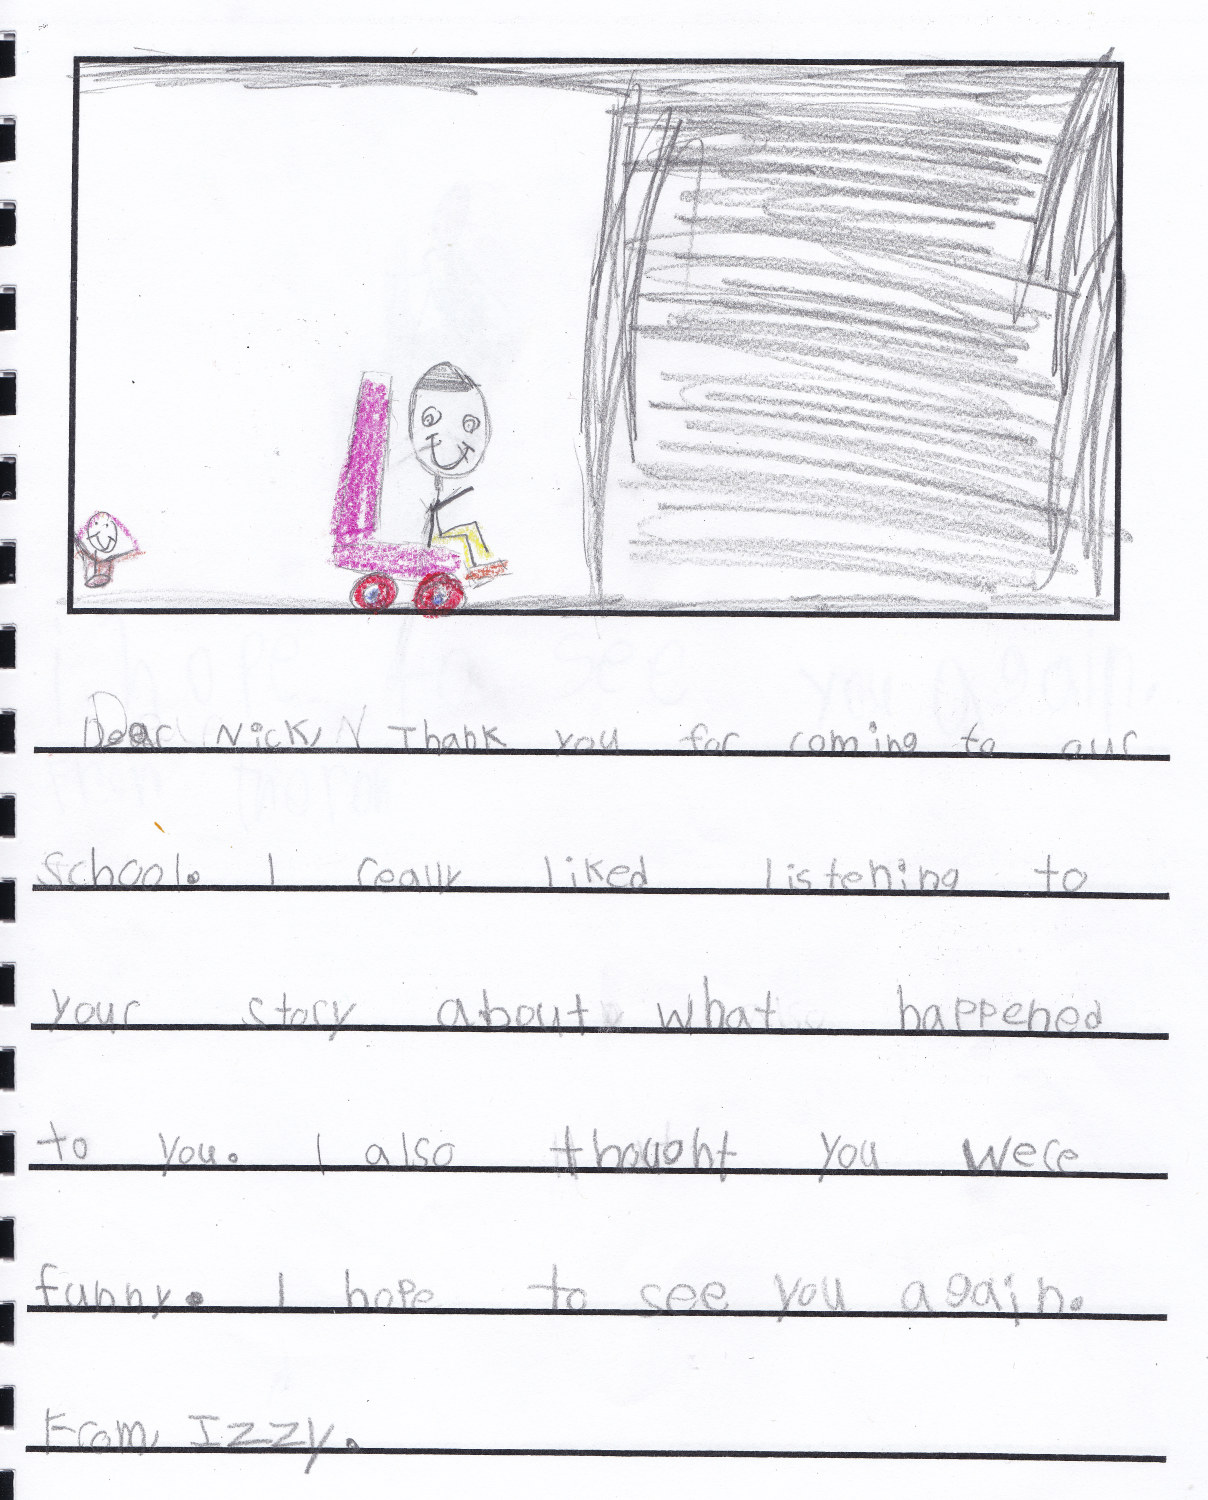 Dear Nick, Thank you for coming to our
school. I really liked listening to
your story about what happened
to you. I also thought you were
funny. I hope to see you again.
From Izzy.